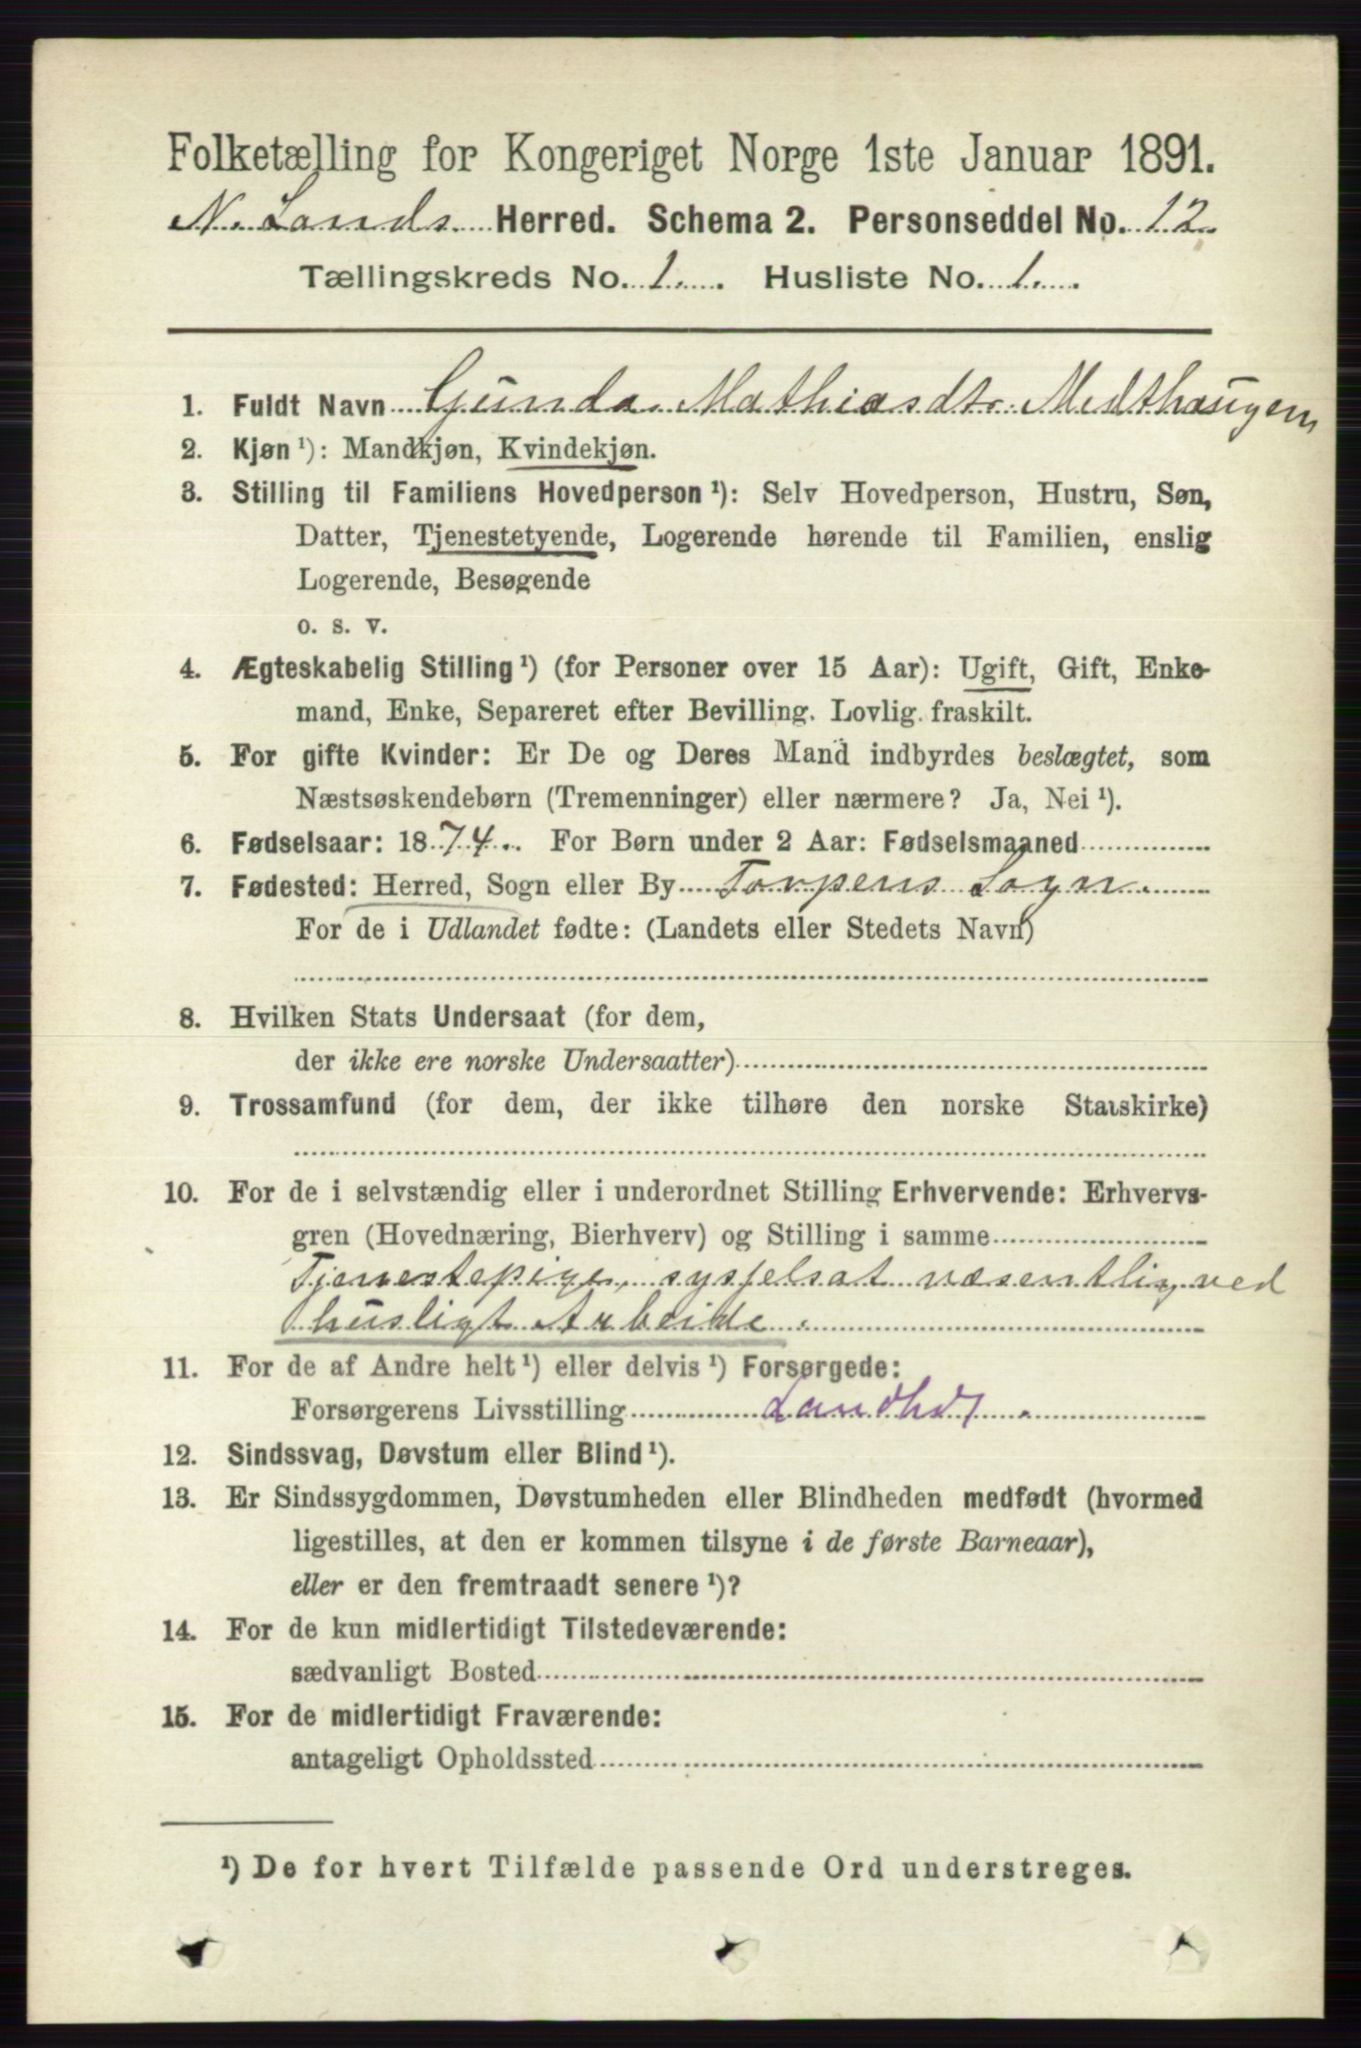 Folketælling for Kongeriget Norge 1ste Januar 1891.
N. Lands Herred. Schema 2. Personseddel No. 12.
Tællingskreds No. 1. Husliste No. 1.
1. Fuldt Navn Gunda Mathiasdtr Medthaugen
2. Kjøn ¹): Mandkjøn, Kvindekjøn.
3. Stilling til Familiens Hovedperson ¹): Selv Hovedperson, Hustru, Søn,
Datter, Tjenestetyende, Logerende hørende til Familien, enslig
Logerende, Besøgende
o. s. v.
4. Ægteskabelig Stilling ¹) (for Personer over 15 Aar): Ugift, Gift, Enke-
mand, Enke, Separeret efter Bevilling. Lovlig. fraskilt.
5. For gifte Kvinder: Er De og Deres Mand indbyrdes beslægtet, som
Næstsøskendebørn (Tremenninger) eller nærmere? Ja, Nei ¹).
6. Fødselsaar: 1874. For Børn under 2 Aar: Fødselsmaaned
7. Fødested: Herred, Sogn eller By Torpens Sogn.
For de i Udlandet fødte: (Landets eller Stedets Navn)
8. Hvilken Stats Undersaat (for dem,
der ikke ere norske Undersaatter)
9. Trossamfund (for dem, der ikke tilhøre den norske Statskirke)
10. For de i selvstændig eller i underordnet Stilling Erhvervende: Erhvervs-
gren (Hovednæring, Bierhverv) og Stilling i samme
Tjenestepige, sysselsat væsentlig ved
husligt Arbeide.
11. For de af Andre helt ¹) eller delvis ¹) Forsørgede:
Forsørgerens Livsstilling Landhdl.
12. Sindssvag, Døvstum eller Blind ¹).
13. Er Sindssygdommen, Døvstumheden eller Blindheden medfødt (hvormed
ligestilles, at den er kommen tilsyne i de første Barneaar),
eller er den fremtraadt senere ¹)?
14. For de kun midlertidigt Tilstedeværende:
sædvanligt Bosted
15. For de midlertidigt Fraværende:
antageligt Opholdssted
¹) De for hvert Tilfælde passende Ord understreges.